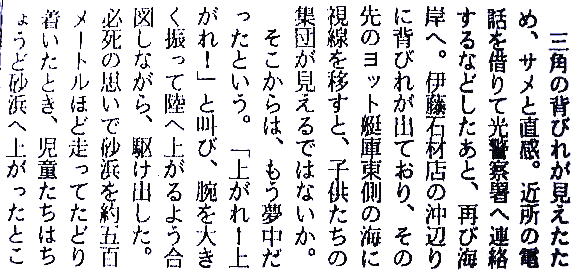 三角の背びれが見えたた
め、サメと直感。近所の電
話を借りて光警察署へ連絡
するなどしたあと、再び海
岸へ。伊藤石材店の沖辺り
に背びれが出ており、その
先のヨット艇庫東側の海に
視線を移すと、子供たちの
集団が見えるではないか。
そこからは、もう夢中だ
ったという。「上がれー上
がれー」と叫び、腕を大き
く振って陸へ上がるよう合
図しながら、駆け出した。
必死の思いで砂浜を約五百
メートルほど走ってたどり
着いたとき、児童たちはち
ょうど砂浜へ上がったとこ